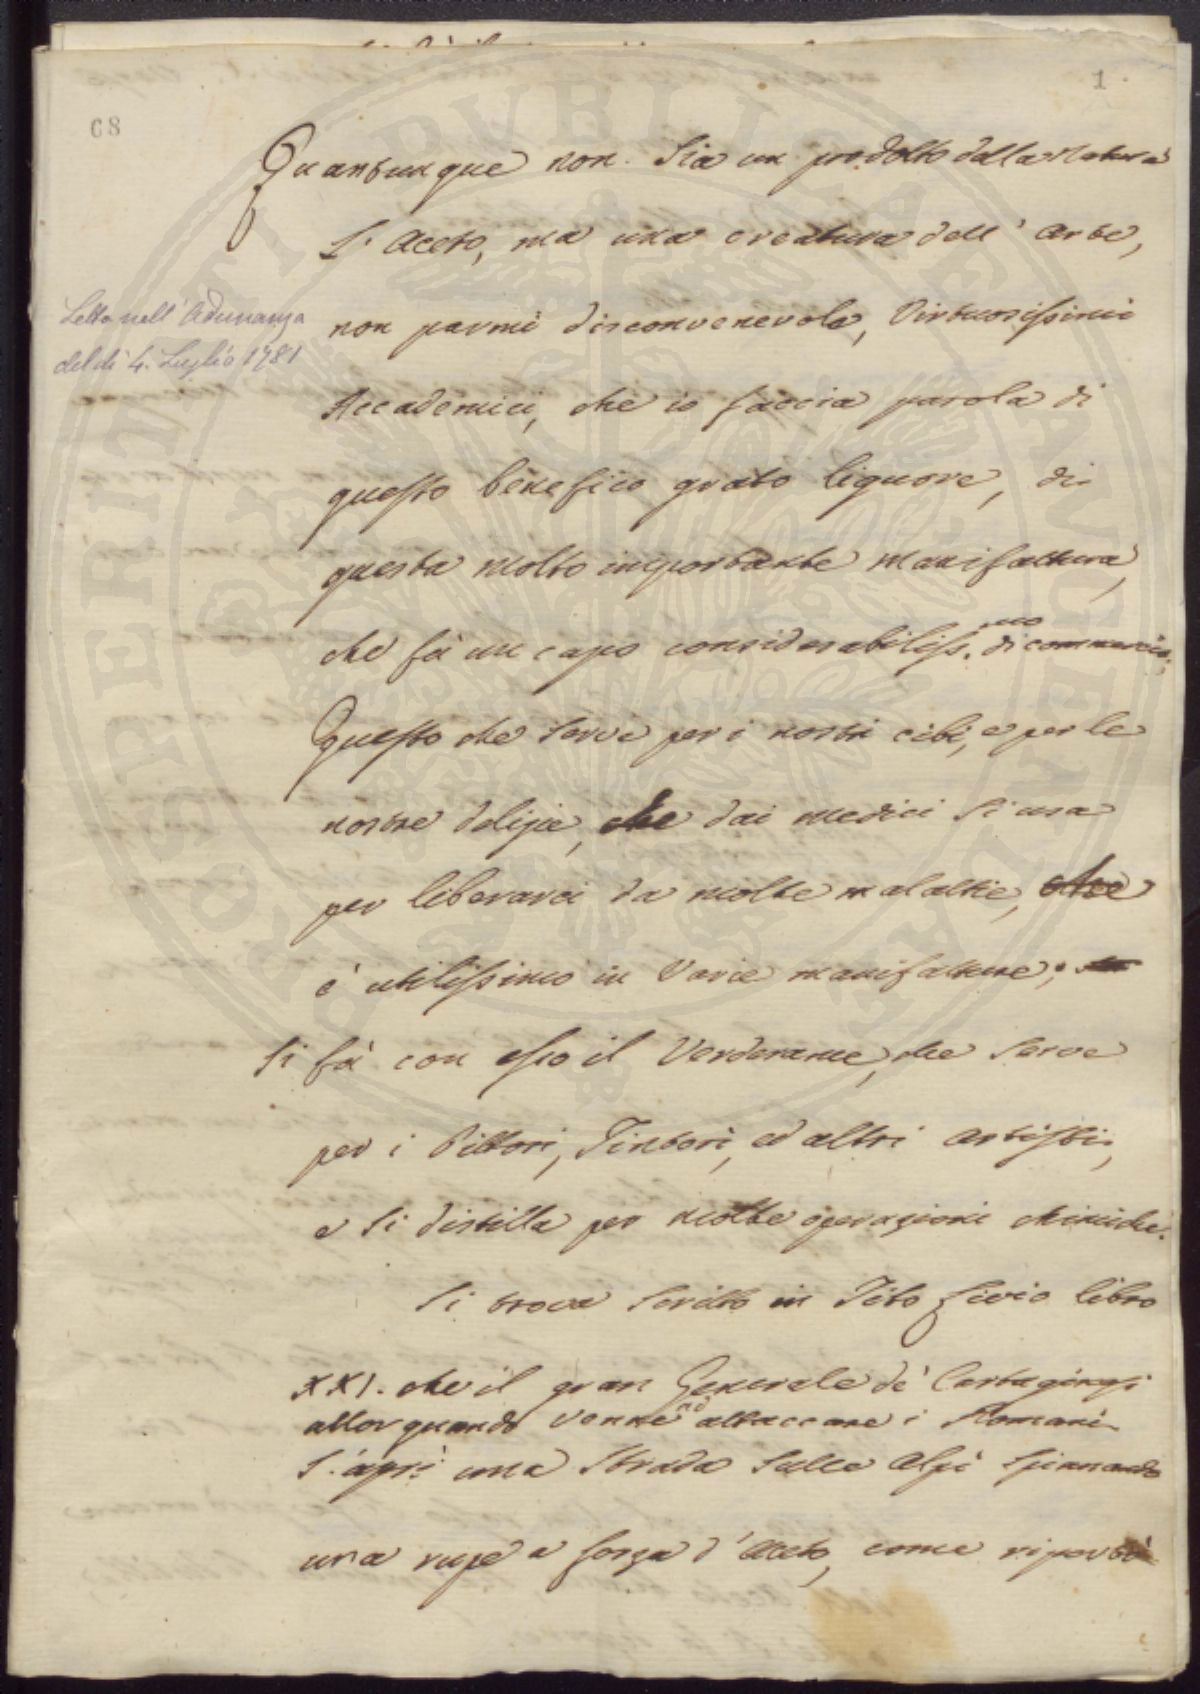 1
C8
Quantunque non sia un prodotto della Natura
L'Aceto, ma una creatura dell'arte,
Letto nell'Adunanza
del dì 4. Luglio 1781
non parmi disconvenevole, Virtuosissimi
Accademici, che io faccia parola di
questo benefico grato liquore, di
questa molto importante manifattura,
che fà un capo considerabiliss.mo di commercio;
Questo che serve per i nostri cibi, e per le
nostre delizie, che dai Medici si usa
per liberarci da molte malattie, che
è utilissimo in varie manifatture;
si fà con esso il Verderame, che serve
per i Pittori, Tintori, ed altri artisti,
e si distilla per molte operazioni chimiche.
Si trova scritto in Tito Livio libro
XXI. che il gran Generale de' Cartaginesi
allor quando venne ad attaccare i Romani
s'aprì una strada sulle Alpi spianando
una rupe a forza d'Aceto, come riportò
PROSPERITATI PUBLICAE AUGENDAE